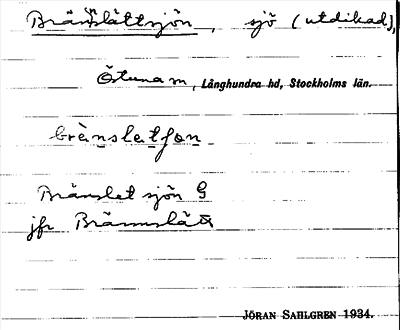 Brännslättsjön, sjö (utdikad),
Östuna sn, Långhundra hd, Stockholms län.
brȁnslatʃon
Bränslet sjön G
jfr Brännslätt
JÖRAN SAHLGREN 1934.